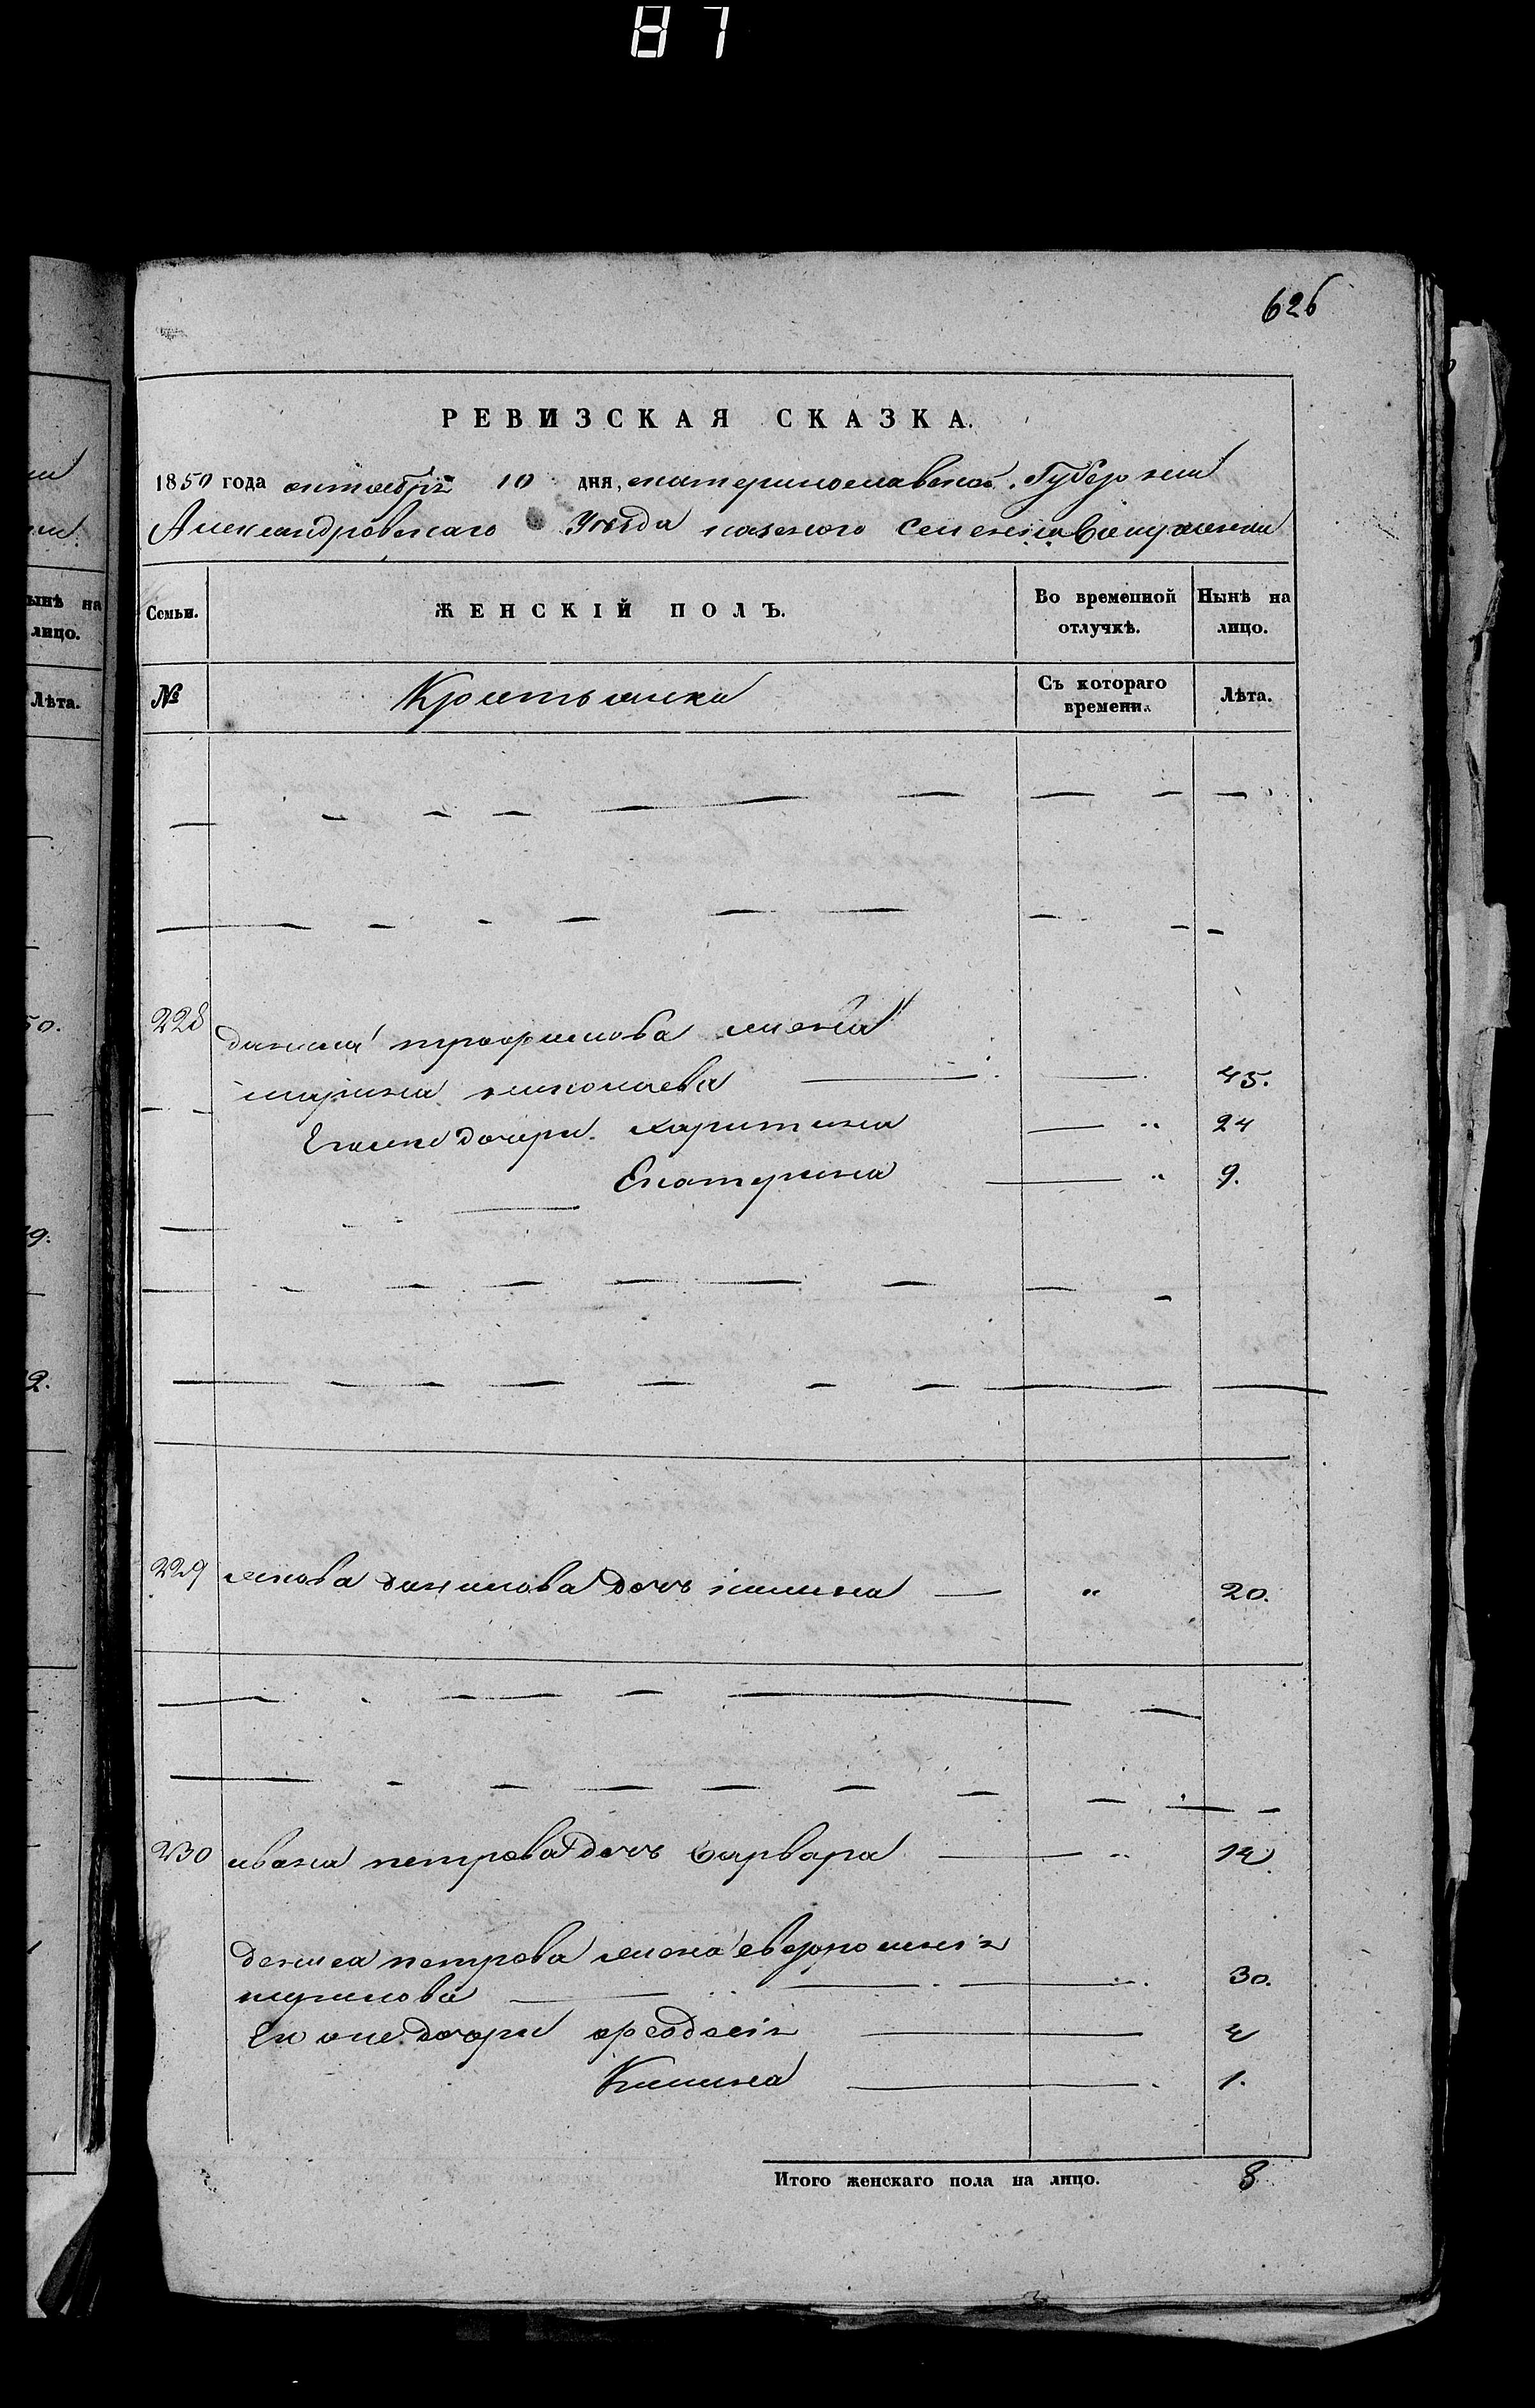 87
626
РЕВИЗСКАЯ СКАЗКА.
1850 года октября 10 дня, екатеринославской Губернии
Александровскаго Уезда казенаго Селения
Семьи.
ЖЕНСКІЙ ПОЛЪ.
Во временной отлучкѣ.
Нынѣ на лицо.
№
Крестьянки
Съ котораго времени.
Лѣта.
228 данила трофимова жена
марина николаева 45.
Егоже дочери харитина 24
Екатерина 9.
229 якова данилова дочь акилина 20.
230 ивана петрова дочь варвара 14
дениса петрова жена евфросиния
30.
Его же дочери феодосия 4
Килина 1.
Итого женскаго пола на лицо. 8
ынѣ на
лицо.
Лѣта.
50.
9.
2.